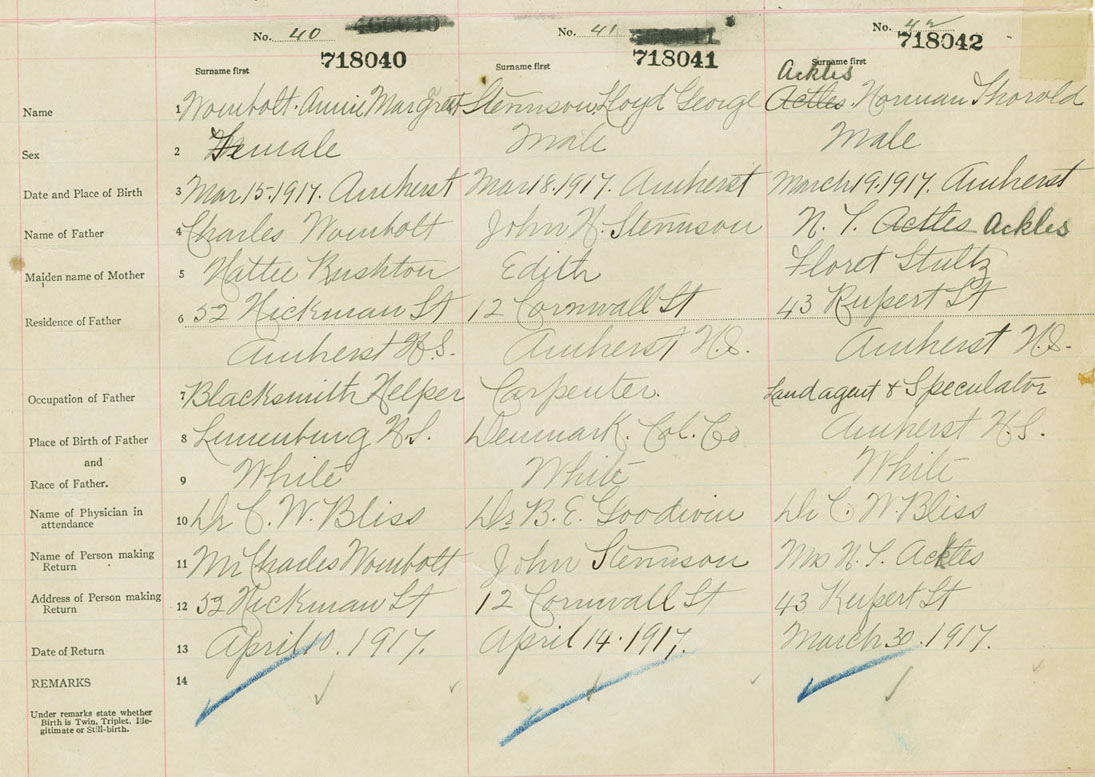 No. 40 No. 41 No. 42
718040 718041 718042
Surname first Surname first Surname first
Ackles
Name 1 Wombolt Annie Margret Stennson Lloyd George Actles Norman Thorold
Sex 2 Female Male Male
Date and Place of Birth 3 Mar 15. 1917. Amherst Mar 18. 1917. Amherst March 19. 1917. Amherst
Name of Father 4 Charles Wombolt John H. Stennson N. T. Actles Ackles
Maiden name of Mother 5 Hattie Rushton Edith Floret Stultz
Residence of Father 6 52 Hickman St 12 Cornwall St 43 Rupert St
Amherst N.S. Amherst N.S. Amherst N.S.
Occupation of Father 7 Blacksmith Helper Carpenter. Land agent & Speculator
Place of Birth of Father 8 Lunenburg N.S. Denmark. Col. Co Amherst N.S.
and
Race of Father. 9 White White White
Name of Physician in
attendance 10 Dr C. W. Bliss Dr B. E. Goodwin Dr C. W Bliss
Name of Person making
Return 11 Mr Charles Wombolt John Stennson Mrs N. T. Ackles
Address of Person making
Return 12 52 Hickman St 12 Cornwall St 43 Rupert St
Date of Return 13 April 10. 1917. April 14. 1917. March 30. 1917.
REMARKS 14
Under remarks state whether
Birth is Twin, Triplet, Ille-
gitimate or Still-birth.